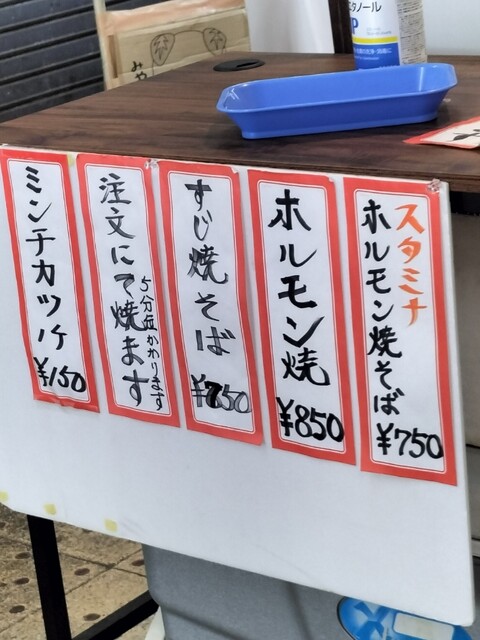 スタミナ
ホルモン焼そば
¥750
ホルモン焼
¥850
すじ焼そば
¥750
注文にて焼ます
5分位かかります
ミンチカツ1ケ
¥150
タノール
P
みや